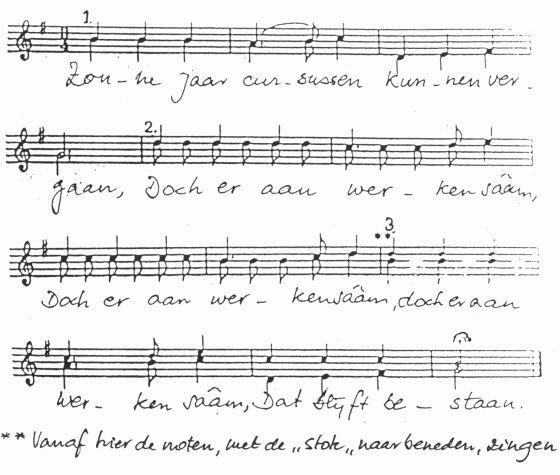 1.
Zon-ne jaar cur-sussen kun-nen ver-
2.
gaan, Doch er aan wer- ken sââm,
** 3.
Doch er aan wer- ken sââm, doch er aan
wer- ken sââm, Dat blijft be- staan.
** Vanaf hier de noten, met de „stok„ naar beneden, zingen